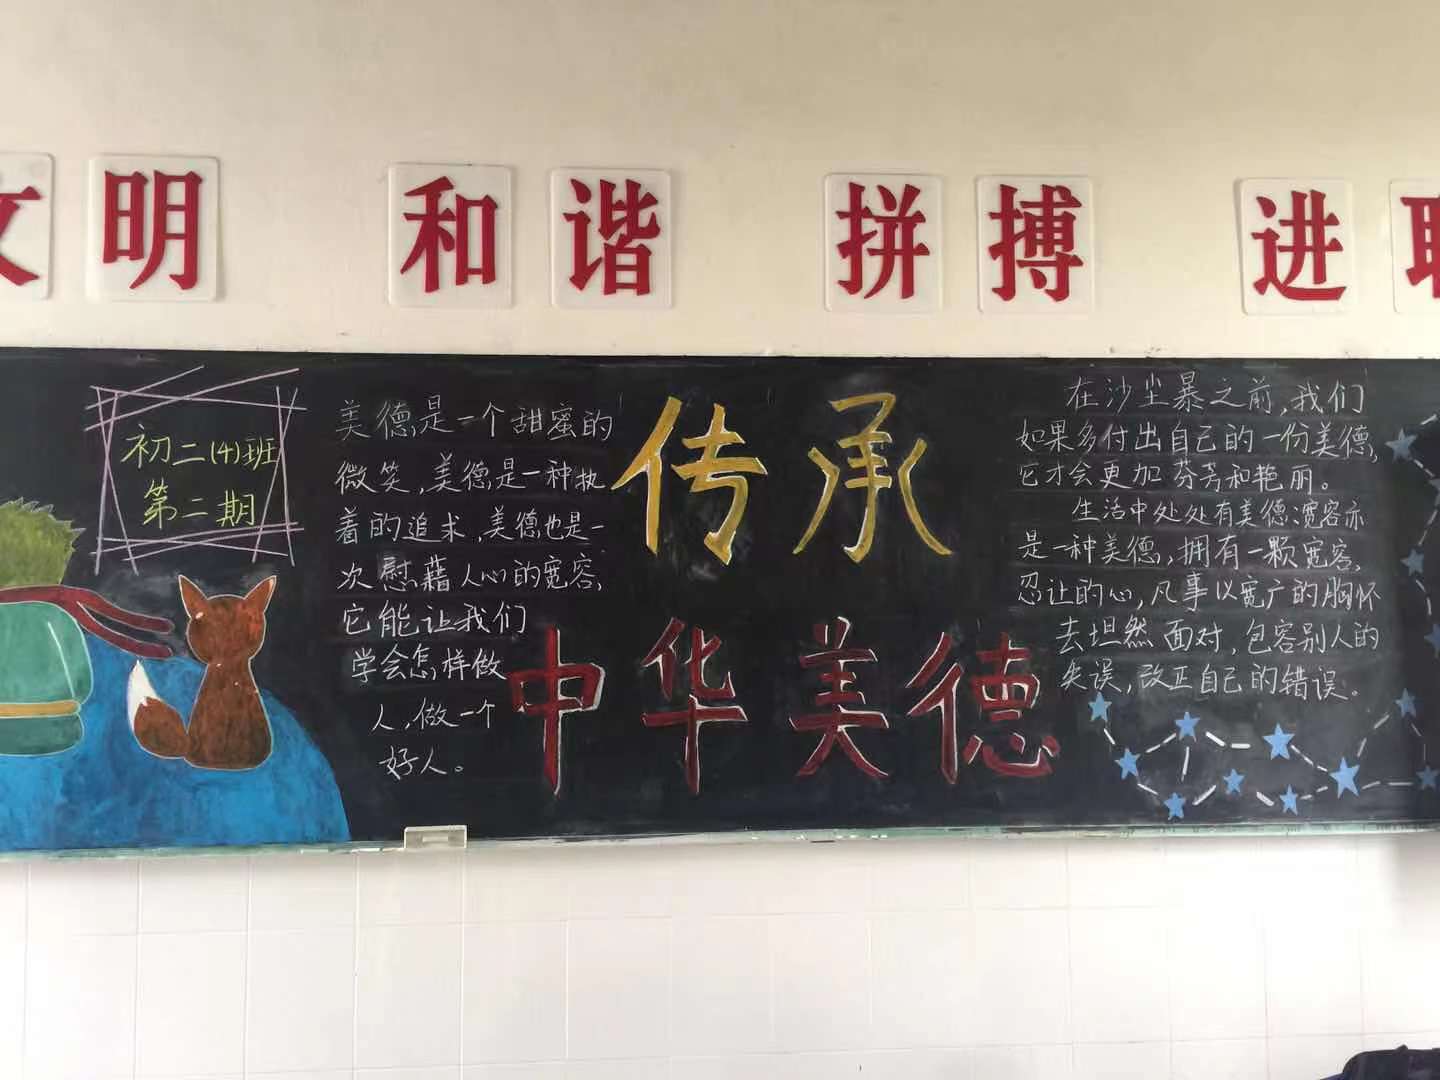 明 和谐 拼搏 进
初二(4)班
第二期
美德是一个甜蜜的
微笑,美德是一种执
着的追求,美德也是一
次慰藉人心的宽容,
它能让我们
学会怎样做
人,做一个
好人。
传承
中华美德
在沙尘暴之前,我们
如果多付出自己的一份美德,
它才会更加芬芳和艳丽。
生活中处处有美德:宽容亦
是一种美德,拥有一颗宽容,
忍让的心,凡事以宽广的胸怀
去坦然面对,包容别人的
失误,改正自己的错误。